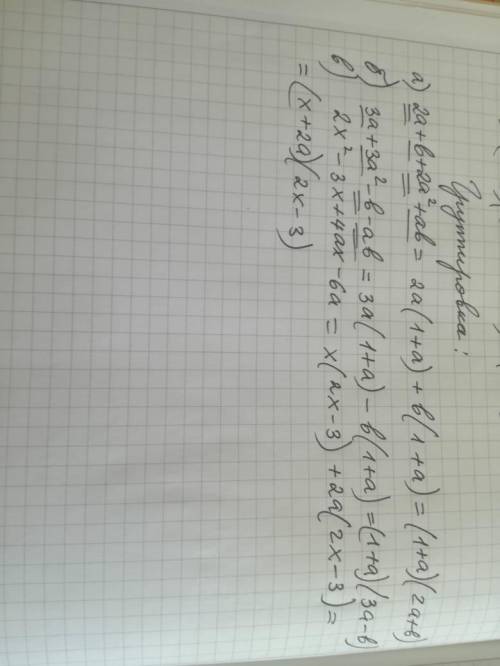 Группировка:
а) 2a+b+2a²+ab = 2a(1+a)+b(1+a) = (1+a)(2a+b)
б) 3a+3a²-b-ab = 3a(1+a)-b(1+a) = (1+a)(3a-b)
в) 2x²-3x+4ax-6a = x(2x-3)+2a(2x-3) =
= (x+2a)(2x-3)